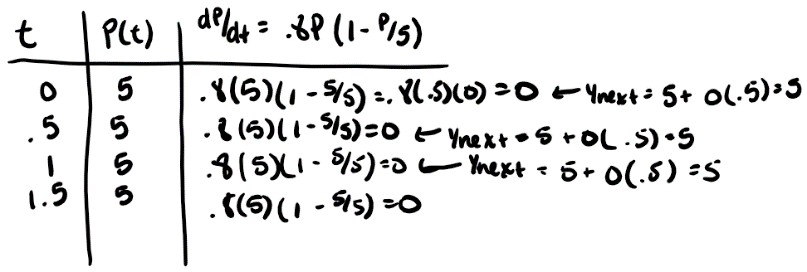 t P(t) dP/dt = .8P (1 - P/5)
0 5 .8(5)(1 - 5/5) = .8(.5)(0) = 0 ← Ynext = 5 + 0(.5) = 5
.5 5 .8(5)(1 - 5/5) = 0 ← Ynext = 5 + 0(.5) = 5
1 5 .8(5)(1 - 5/5) = 0 ← Ynext = 5 + 0(.5) = 5
1.5 5 .8(5)(1 - 5/5) = 0